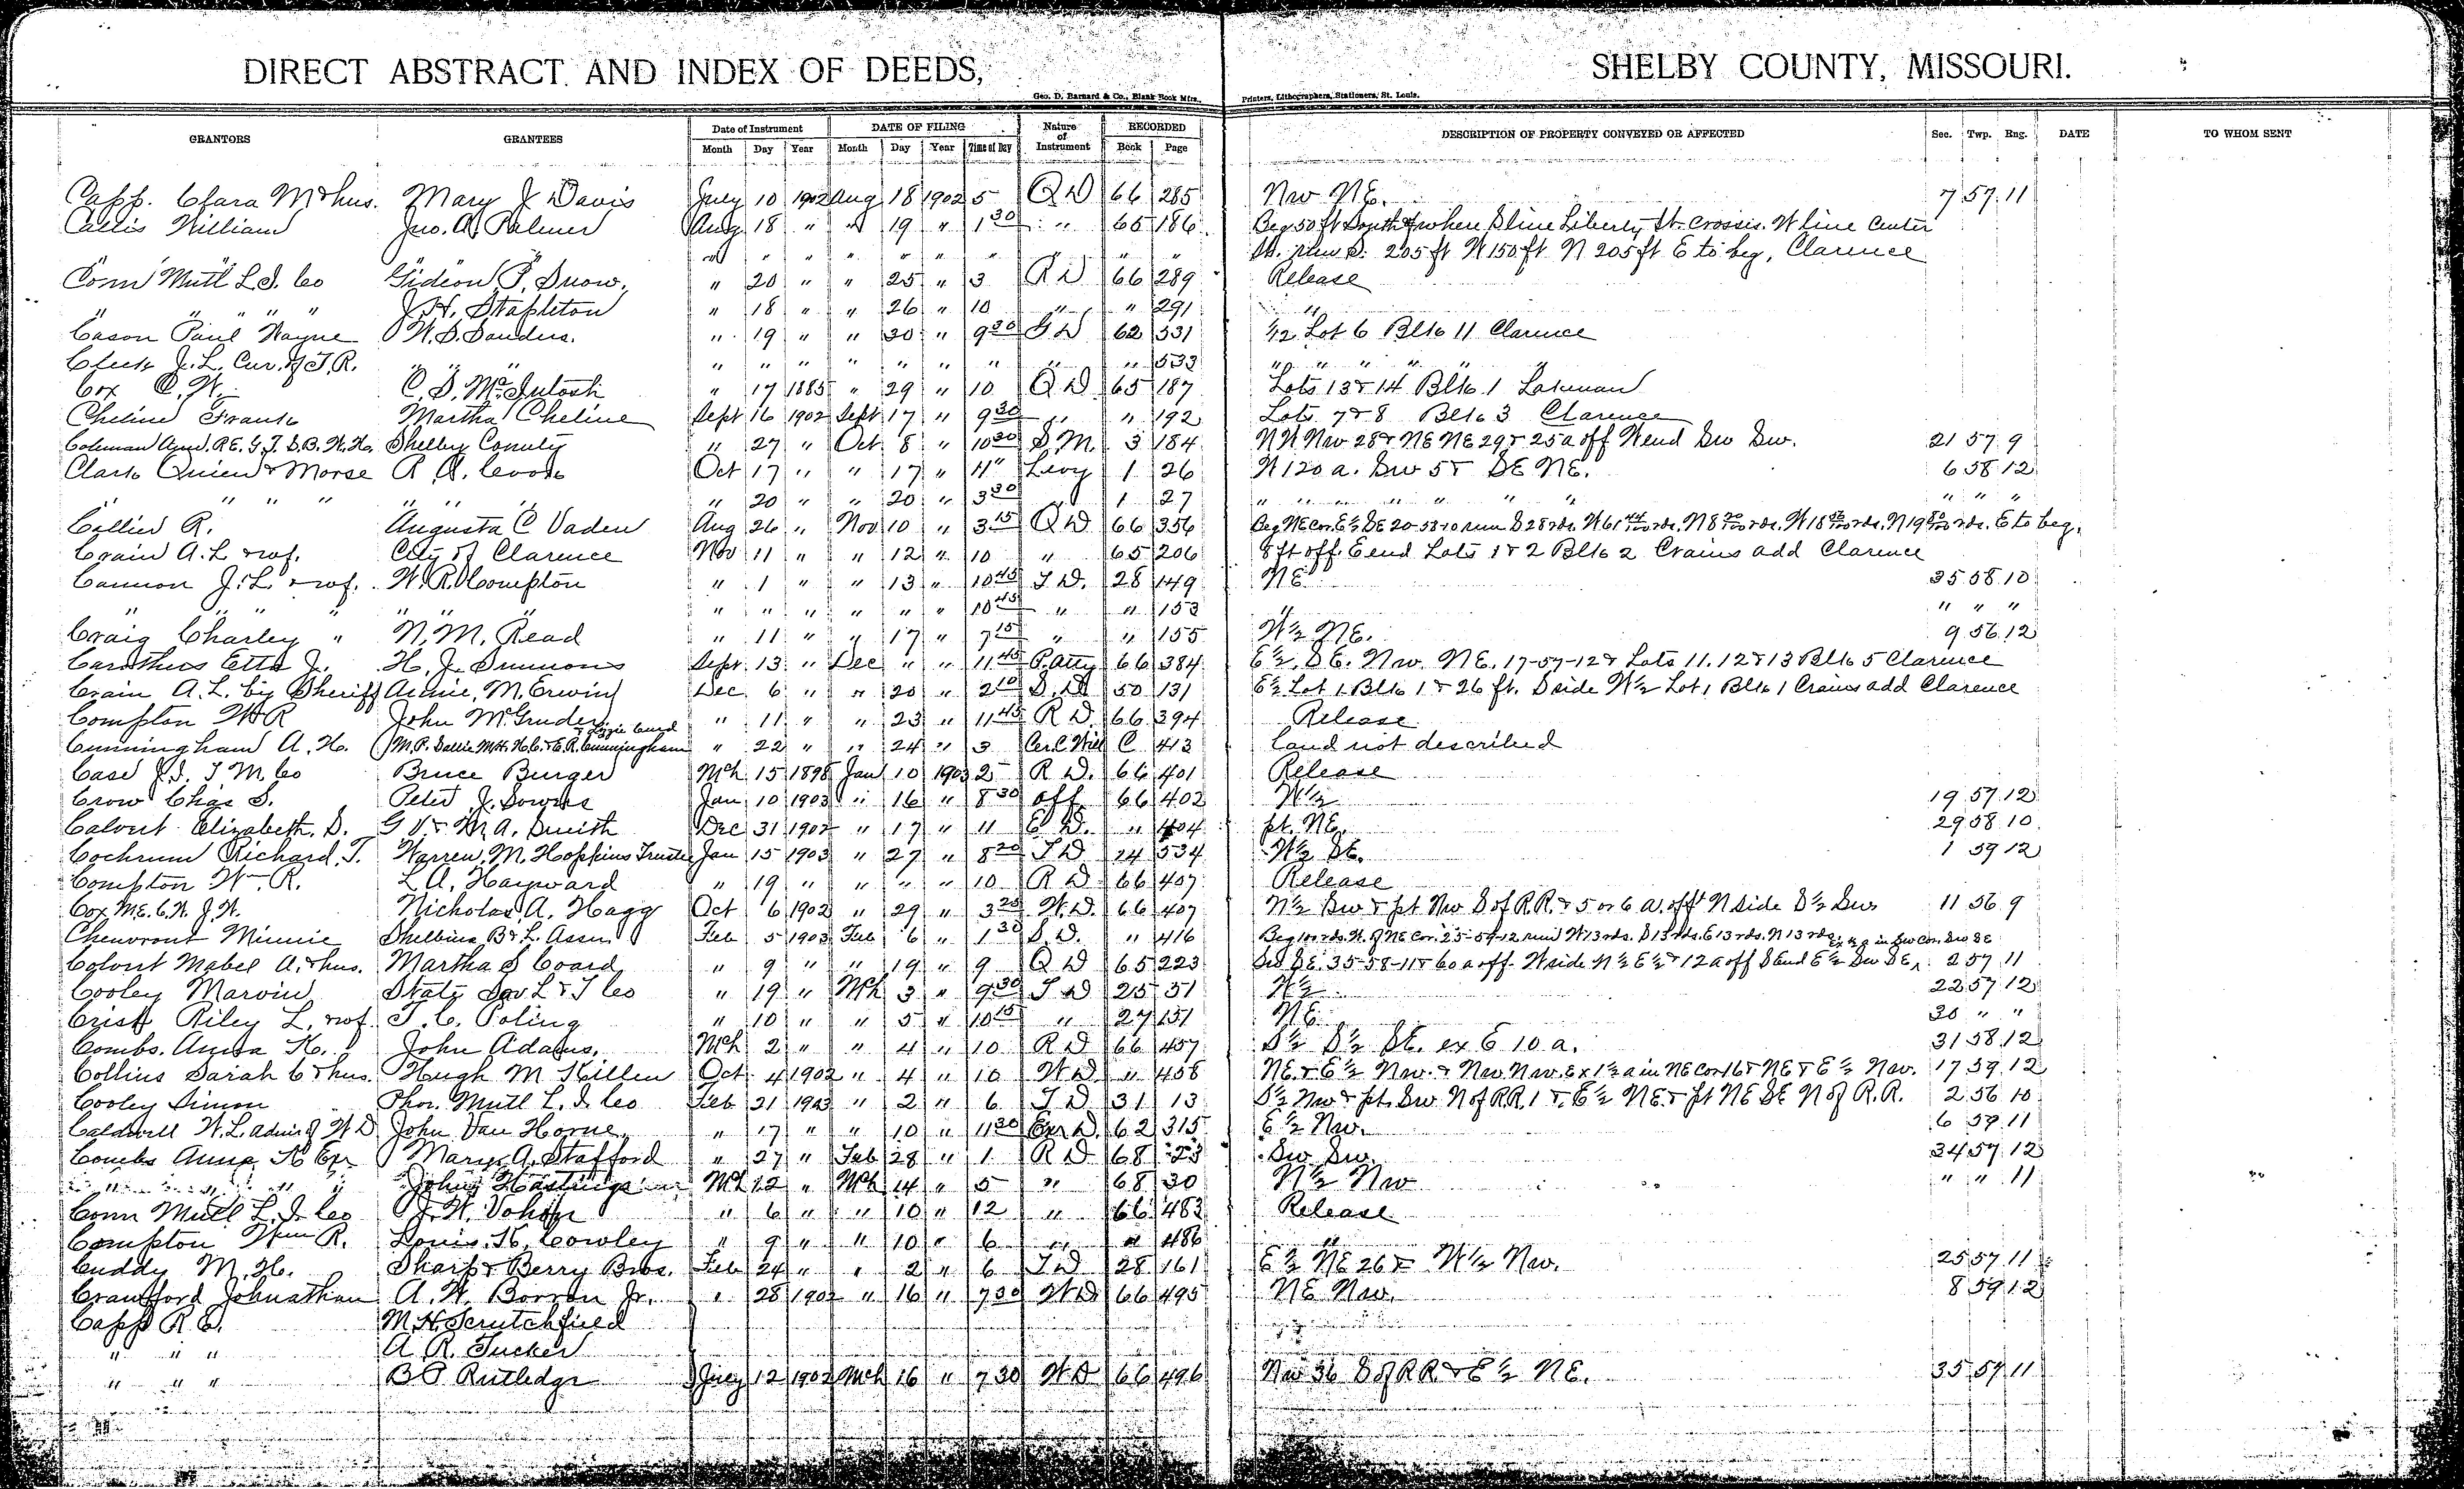 DIRECT ABSTRACT AND INDEX OF DEEDS, SHELBY COUNTY, MISSOURI.
Geo. D. Barnard & Co., Blank Book Mfrs., Printers, Lithographers, Stationers, St. Louis.
GRANTORS GRANTEES Date of Instrument DATE OF FILING Nature of Instrument RECORDED DESCRIPTION OF PROPERTY CONVEYED OR AFFECTED Sec. Twp. Rng. DATE TO WHOM SENT
Month Day Year Month Day Year Time of Day Book Page
Capp. Clara M & hus. Mary J Davis July 10 1902 Aug 18 1902 5 Q D 66 285 Nw NE. 7 57 11
Callis William Jno. A. Palmer Aug 18 " " 19 " 1 30 " 65 186 Beg 50 ft South of where S line Liberty St crosses W line Center
" " " " " " " " " St. run S. 205 ft W 150 ft N 205 ft E to beg, Clarence
Conn Mutl L I. Co Gideon P. Snow, " 20 " " 25 " 3 R D 66 289 Release
" " " " J. H. Stapleton " 18 " " 26 " 10 " " 291 "
Cason Paul Wayne W. S. Sanders. " 19 " " 30 " 9 30 G D 62 531 1/2 Lot 6 Blk 11 Clarence
Cleek J. L. Cur. of T. R. " " " " " " " " " " " 533 " " " " " "
Cox C. W. C. S. McIntosh " 17 1885 " 29 " 10 Q D 65 187 Lots 13 & 14 Blk 1 Lakenan
Cheline Frank Martha Cheline Sept 16 1902 Sept 17 " 9 30 " " 192 Lots 7 & 8 Blk 3 Clarence
Coleman Amd. R E. G. T. S. B. W. H. Shelby County " 27 " Oct 8 " 10 30 S. M. 3 184 N W Nw 28 & NE NE 29 & 25 a off W end Sw Sw. 21 57 9
Clark Quien & Morse R. A. Crook Oct 17 " " 17 " 11 Levy 1 26 W 120 a. Sw 5 & SE NE. 6 58 12
" " " " " " " 20 " " 20 " 3 30 1 27 " " " " " " " " "
Collier R. Augusta C Vaden Aug 26 " Nov 10 " 3 15 Q D 66 356 Beg NE cor. E 1/2 SE 20-58-10 run S 28 rds. W 61 44/100 rds. N 8 rds. W 18 rds. N 19 rds. E to beg.
Crain A. L & wf. City of Clarence Nov 11 " " 12 " 10 " 65 206 8 ft off E end Lots 1 & 2 Blk 2 Crains add Clarence
Cannon J. L. & wf. W. R. Compton " 1 " " 13 " 10 45 T D. 28 149 NE 35 58 10
" " " " " " " " " " 10 45 " " 153 " " " "
Craig Charley " N. M. Read " 11 " " 17 " 7 15 " " 155 W 1/2 NE. 9 56 12
Carothers Etta J. H. J. Simmons Sept. 13 " Dec " " 11 45 P. Atty 66 384 E 1/2 SE. Nw NE. 17-57-12 & Lots 11. 12 & 13 Blk 5 Clarence
Crain A. L. by Sheriff Annie, M. Erwin Dec. 6 " " 20 " 2 10 S. D 50 131 E 1/2 Lot 1 Blk 1 & 26 ft. S side W 1/2 Lot 1 Blk 1 Crains add Clarence
Compton W R John McGruder " 11 " " 23 " 11 45 R D. 66 394 Release
Cunningham A. H. M. P. Sallie M. H. H. C. & E. R. Cunningham & Lizzie Curd " 22 " " 24 " 3 Cer. C Will C 413 land not described
Case J. I. T M. Co Bruce Burger Mch 15 1898 Jan 10 1903 2 R D. 66 401 Release
Crow Chas S. Peter J. Sowers Jan 10 1903 " 16 " 8 30 aff 66 402 W 1/2 19 57 12
Calvert Elizabeth. S. G V. & M A. Smith Dec 31 1902 " 17 " 11 D. " 404 pt. NE. 29 58 10
Cochrum Richard. T. Warren, M. Hopkins Trustee Jan 15 1903 " 27 " 8 20 T D 24 534 W 1/2 SE. 1 59 12
Compton Wm. R. L A, Hayward " 19 " " " " 10 R D 66 407 Release
Cox M. E. C. W. J. W. Nicholas A. Hagg Oct 6 1902 " 29 " 3 25 W. D. 66 407 N 1/2 Sw & pt Nw S of R. R. & 5 or 6 a. off N side S 1/2 Sw 11 56 9
Chenoront Minnie Shelbina B & L. Assn Feb 5 1903 Feb 6 " 1 30 S. D. " 416 Beg 100 rds. W. of NE Cor. 25-57-12 run W 13 rds. S 13 rds. E 13 rds. N 13 rds.
Colvert Mabel A. & hus. Martha S Coard " 9 " " 19 " 9 Q D 65 223 Sw SE. 35-58-11 & 60 a off W side N 1/2 E 1/2 & 12 a off S End E 1/2 Sw SE ex 1/2 a in Sw Cor. Sw SE 2 57 11
Cooley Marvin State Sav L & T Co " 19 " Mch 3 " 9 30 T D 25 51 N 1/2 22 57 12
Crist Riley L, & wf. T. C. Poling " 10 " " 5 " 10 15 " 27 151 NE. 30 " "
Combs. Anna K. John Adams. Mch 2 " " 4 " 10 R D 66 457 S 1/2 S 1/2 SE. ex E 10 a. 31 58 12
Collins Sarah C & hus. Hugh M Killen Oct 4 1902 " 4 " 10 W D " 458 NE. & E 1/2 Nw. & Nw Nw. Ex 1 1/2 a in NE cor 16 & NE & E 1/2 Nw. 17 59 12
Cooley Simon Phor. Mutl L. I. Co Feb 21 1903 " 2 " 6 T D 31 13 S 1/2 Nw & pt. Sw N of R R. 1 & E 1/2 NE & pt NE SE N of R. R. 2 56 10
Caldwell W. L. admr of W D John Van Horne " 17 " " 10 " 11 30 Exr D. 62 315 E 1/2 Nw. 6 59 11
Combs Anna K Exr Mary A. Stafford " 27 " Feb 28 " 1 R D 68 23 Sw Sw. 34 57 12
" " " " John Hastings Mch 12 " Mch 14 " 5 " 68 30 N 1/2 Nw " " 11
Conn Mutl L. I. Co J. W. " 6 " " 10 " 12 " 66 483 Release
Compton Wm R. Louis. K. Cowley " 9 " " 10 " 6 " " 486 "
Cuddy M. H. Sharp & Berry Bros. Feb 24 " " 2 " 6 T D 28 161 E 1/2 NE 26 & W 1/2 Nw. 25 57 11
Crantford Johnathan A. W. Borron Jr. " 28 1902 " 16 " 7 30 W D 66 495 NE Nw. 8 59 12
Capp R. C. M. H Scrutchfield
" " " A. R. Tucker
" " " B P Rutledge July 12 1902 Mch 16 " 7 30 W D 66 496 Nw 36 S of R R & E 1/2 NE. 35 57 11